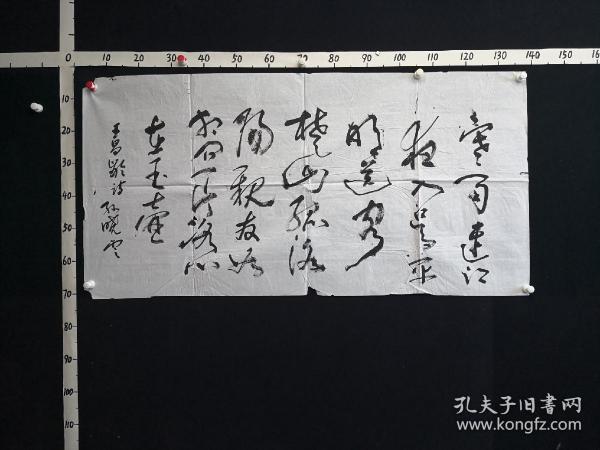 寒雨连江
夜入吴平
明送客
楚山孤洛
阳亲友如
相问一片冰心
在玉壶
王昌龄诗 孙晓云
0 10 20 30 40 50 60 70 80 90 100 110 120 130 140 150 160
10
20
30
40
50
60
70
80
90
100
110
孔夫子旧书网
www.kongfz.com